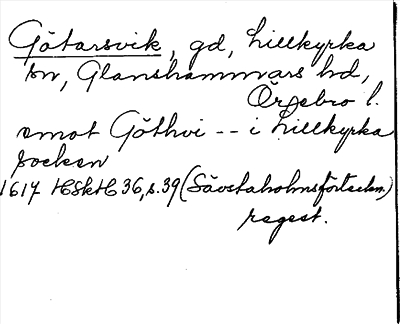 Götarsvik, gd, Lillkyrka
sn, Glanshammars hd,
Örebro l.
emot Göthvi -- i Lillkyrka
socken
1617 HSkH 36, s. 39 (Sävstaholmsförteckn.)
regest.